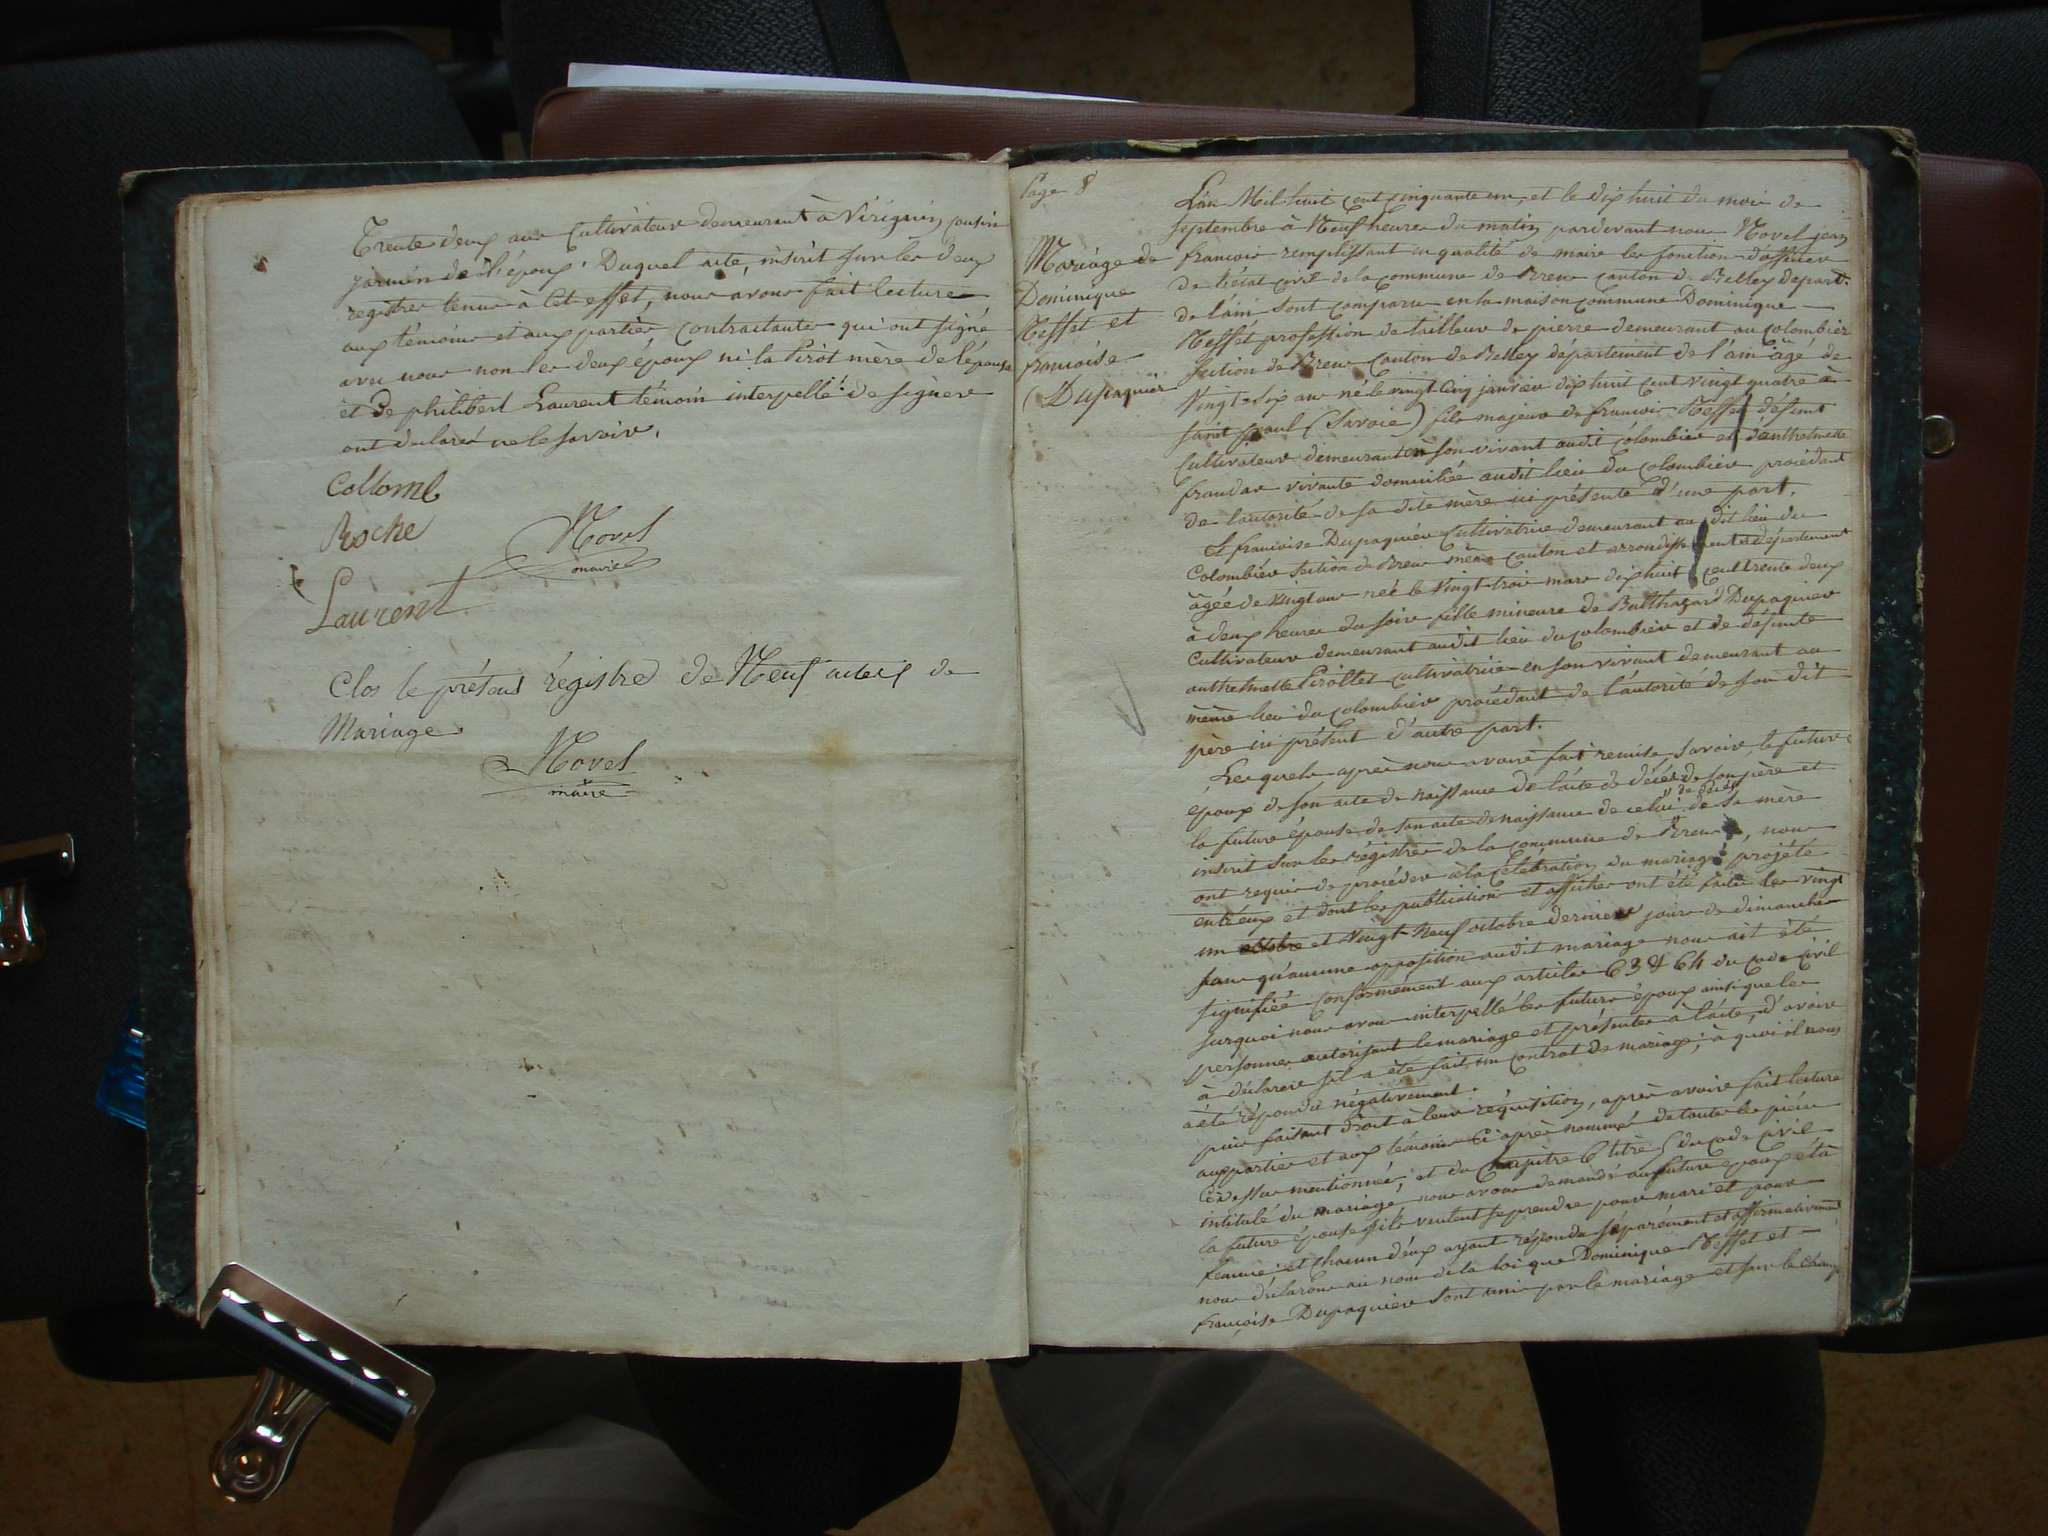 Trente deux ans cultivateur demeurant à Virignin cousin
germin de l'époux. Duquel acte, inscrit sur les deux
registres tenus à cet effet, nous avons fait lecture
aux témoins et aux parties contractantes qui ont signé
avec nous non les deux époux ni la Pirot mère de l'épouse
et de philibert Laurent témoin interpellé de signer
ont déclaré ne le savoir.
Collomb
Roche
Novel
maire
Laurent
Clos le présent régistre de Neuf actes de
Mariage
Novel
maire
Page 8
Mariage de
Dominique
Neffet et
francoise
Dupaquier
L'an Mil huit cent cinquante un, et le dix huit du mois de
septembre à Neuf heures du matin pardevant nous Novel jean
francois remplissant en qualité de maire les fonction d'officier
de l'état civil de la commune de Brens canton de Belley départ.
de l'ain sont comparu en la maison commune Dominique
Neffet profession de tailleur de pierre demeurant au Colombier
section de Brens canton de Belley département de l'ain âgé de
Vingt-six ans né le vingt cinq janvier dix huit cent vingt quatre à
saint paul (Savoie) fils majeur de francois Neffet défunt
cultivateur demeurant en son vivant audit Colombier et d'anthelmette
vivante domiciliée audit lieu du Colombier procédant
de l'autorité de sa dite mère ici présente d'une part.
Et francoise Dupaquier cultivatrice demeurant au dit lieu du
Colombier section de Brens même canton et arrondissement et département
âgée de vingt ans née le vingt trois mars dix huit cent trente deux
à deux heures du soire fille mineure de Balthazard Dupaquier
cultivateur demeurant audit lieu du Colombier et de défunte
anthelmette Pirollet cultivatrice en son vivant demeurant au
même lieu du Colombier procédant de l'autorité de son dit
père ici présent d'autre part.
Lesquels après nous avoire fait remise, savoir, le future
époux de son acte de naissance de l'acte de décès de son père et
la future épouse de son acte de naissance de celui de décès de sa mère
inscrit sur les régistres de la commune de Brens, nous
ont requis de procéder à la célébration du mariage projeté
entr'eux et dont les publications et affiches ont été faites les vingt
un octobre et vingt Neuf octobre dernier jours de dimanches
sans qu'aucune opposition audit mariage nous ait été
signifiée conformément aux articles 63 & 64 du Code civil
surquoi nous avons interpellé les futurs époux ainsi que les
personnes autorisant le mariage et présentes à l'acte, d'avoire
à déclarer s'il a été fait un contrat de mariage, à quoi il nous
à été répondu négativement.
puis faisant droit à leur réquisition, après avoire fait lecture
aux parties et aux témoins ci après nommés de toutes les pièces
ci dessus mentionnées, et du Chapitre 6 titre 5 du code civil
intitulé du mariage nous avons demandé au future époux et à
la future épouse s'ils veulent se prendre pour mari et pour
femme et chacun d'eux ayant répondu séparément et affirmativement
nous déclarons au nom de la loi que Dominique Neffet et
francoise Dupaquier sont unis par le mariage et sur le champ